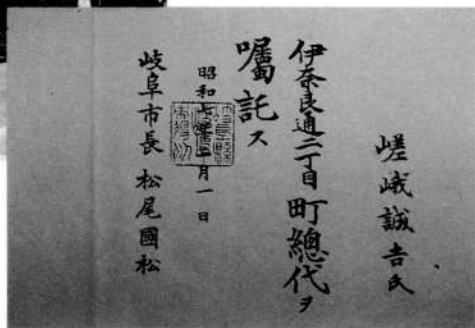 嵯峨誠吉氏
伊奈良通二丁目町總代ヲ
囑託ス
昭和七年 月一日
岐阜市長 松尾國松